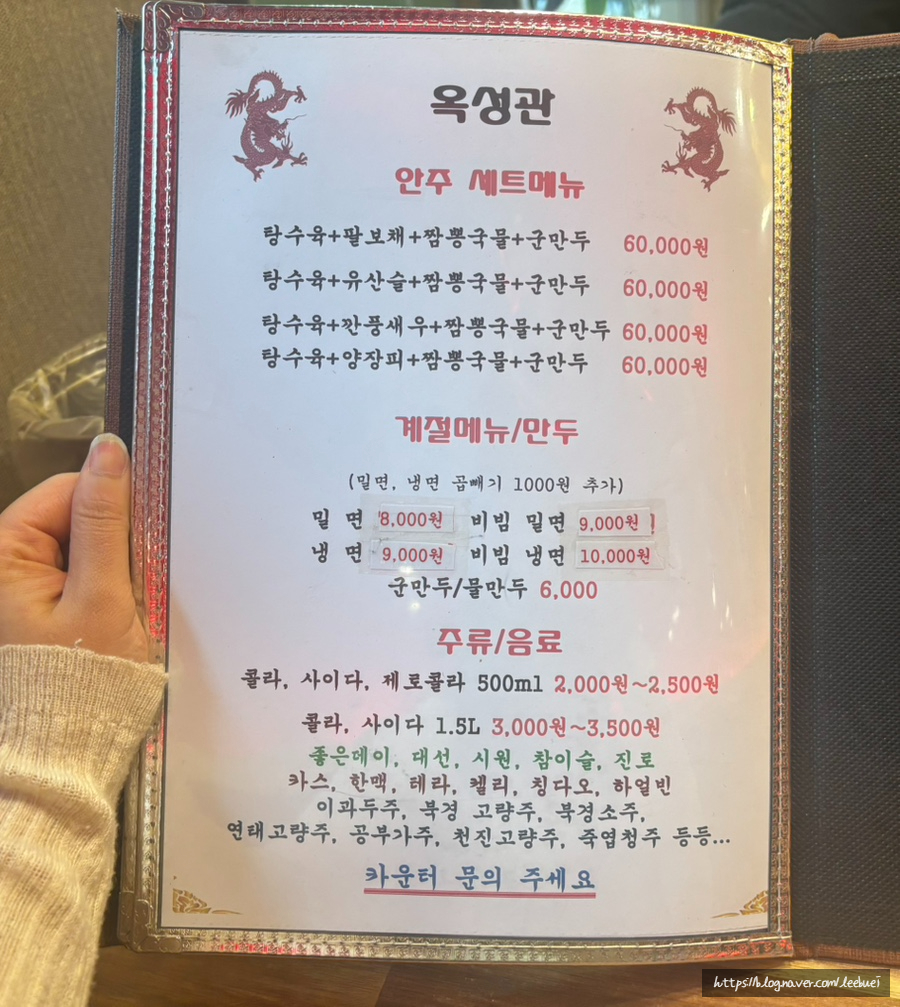 옥성관
안주 세트메뉴
탕수육+팔보채+짬뽕국물+군만두 60,000원
탕수육+유산슬+짬뽕국물+군만두 60,000원
탕수육+깐풍새우+짬뽕국물+군만두 60,000원
탕수육+양장피+짬뽕국물+군만두 60,000원
계절메뉴/만두
(밀면, 냉면 곱빼기 1000원 추가)
밀 면 8,000원 비빔 밀면 9,000원
냉 면 9,000원 비빔 냉면 10,000원
군만두/물만두 6,000
주류/음료
콜라, 사이다, 제로콜라 500ml 2,000원~2,500원
콜라, 사이다 1.5L 3,000원~3,500원
좋은데이, 대선, 시원, 참이슬, 진로
카스, 한맥, 테라, 켈리, 칭다오, 하얼빈
이과두주, 북경 고량주, 북경소주,
연태고량주, 공부가주, 천진고량주, 죽엽청주 등등...
카운터 문의 주세요
https://blog.naver.com/leehuei